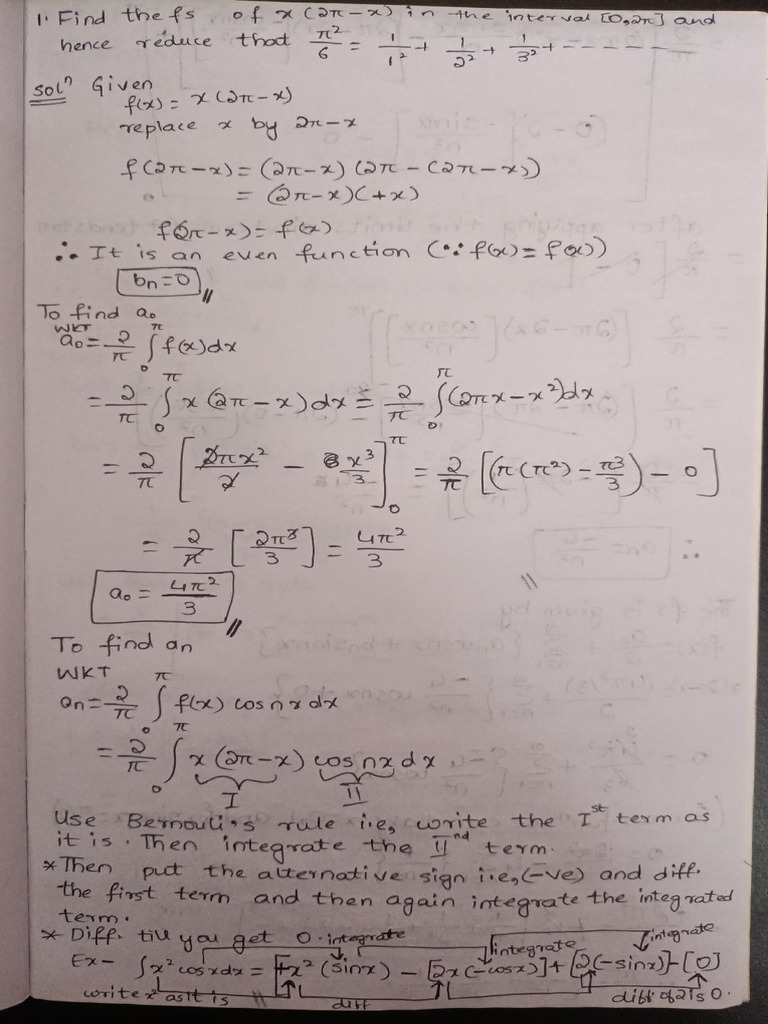 1. Find the fs of x(2π-x) in the interval [0,2π] and
hence reduce that π²/6 = 1/1² + 1/2² + 1/3² + ------
solⁿ Given
f(x) = x(2π-x)
replace x by 2π-x
f(2π-x) = (2π-x)(2π-(2π-x))
= (2π-x)(+x)
f(2π-x) = f(x)
∴ It is an even function (∵ f(x) = f(x))
bn=0 //
To find a₀
WKT
a₀ = 2/π ∫₀^π f(x)dx
= 2/π ∫₀^π x(2π-x)dx = 2/π ∫₀^π (2πx-x²)dx
= 2/π [2πx²/2 - x³/3]₀^π = 2/π [(π(π²) - π³/3) - 0]
= 2/π [2π³/3] = 4π²/3
a₀ = 4π²/3 //
To find an
WKT
an = 2/π ∫₀^π f(x) cosnxdx
= 2/π ∫₀^π x(2π-x) cosnxdx
I II
Use Bernouli's rule i.e, write the Iˢᵗ term as
it is. Then integrate the IIⁿᵈ term.
*Then put the alternative sign i.e,(-ve) and diff.
the first term and then again integrate the integrated
term.
* Diff. till you get 0. integrate integrate integrate
Ex- ∫x²cosxdx = [+x²(sinx) - [2x(-cosx)] + [2(-sinx)] - [0]
write x² as it is diff diff. of 2 is 0.